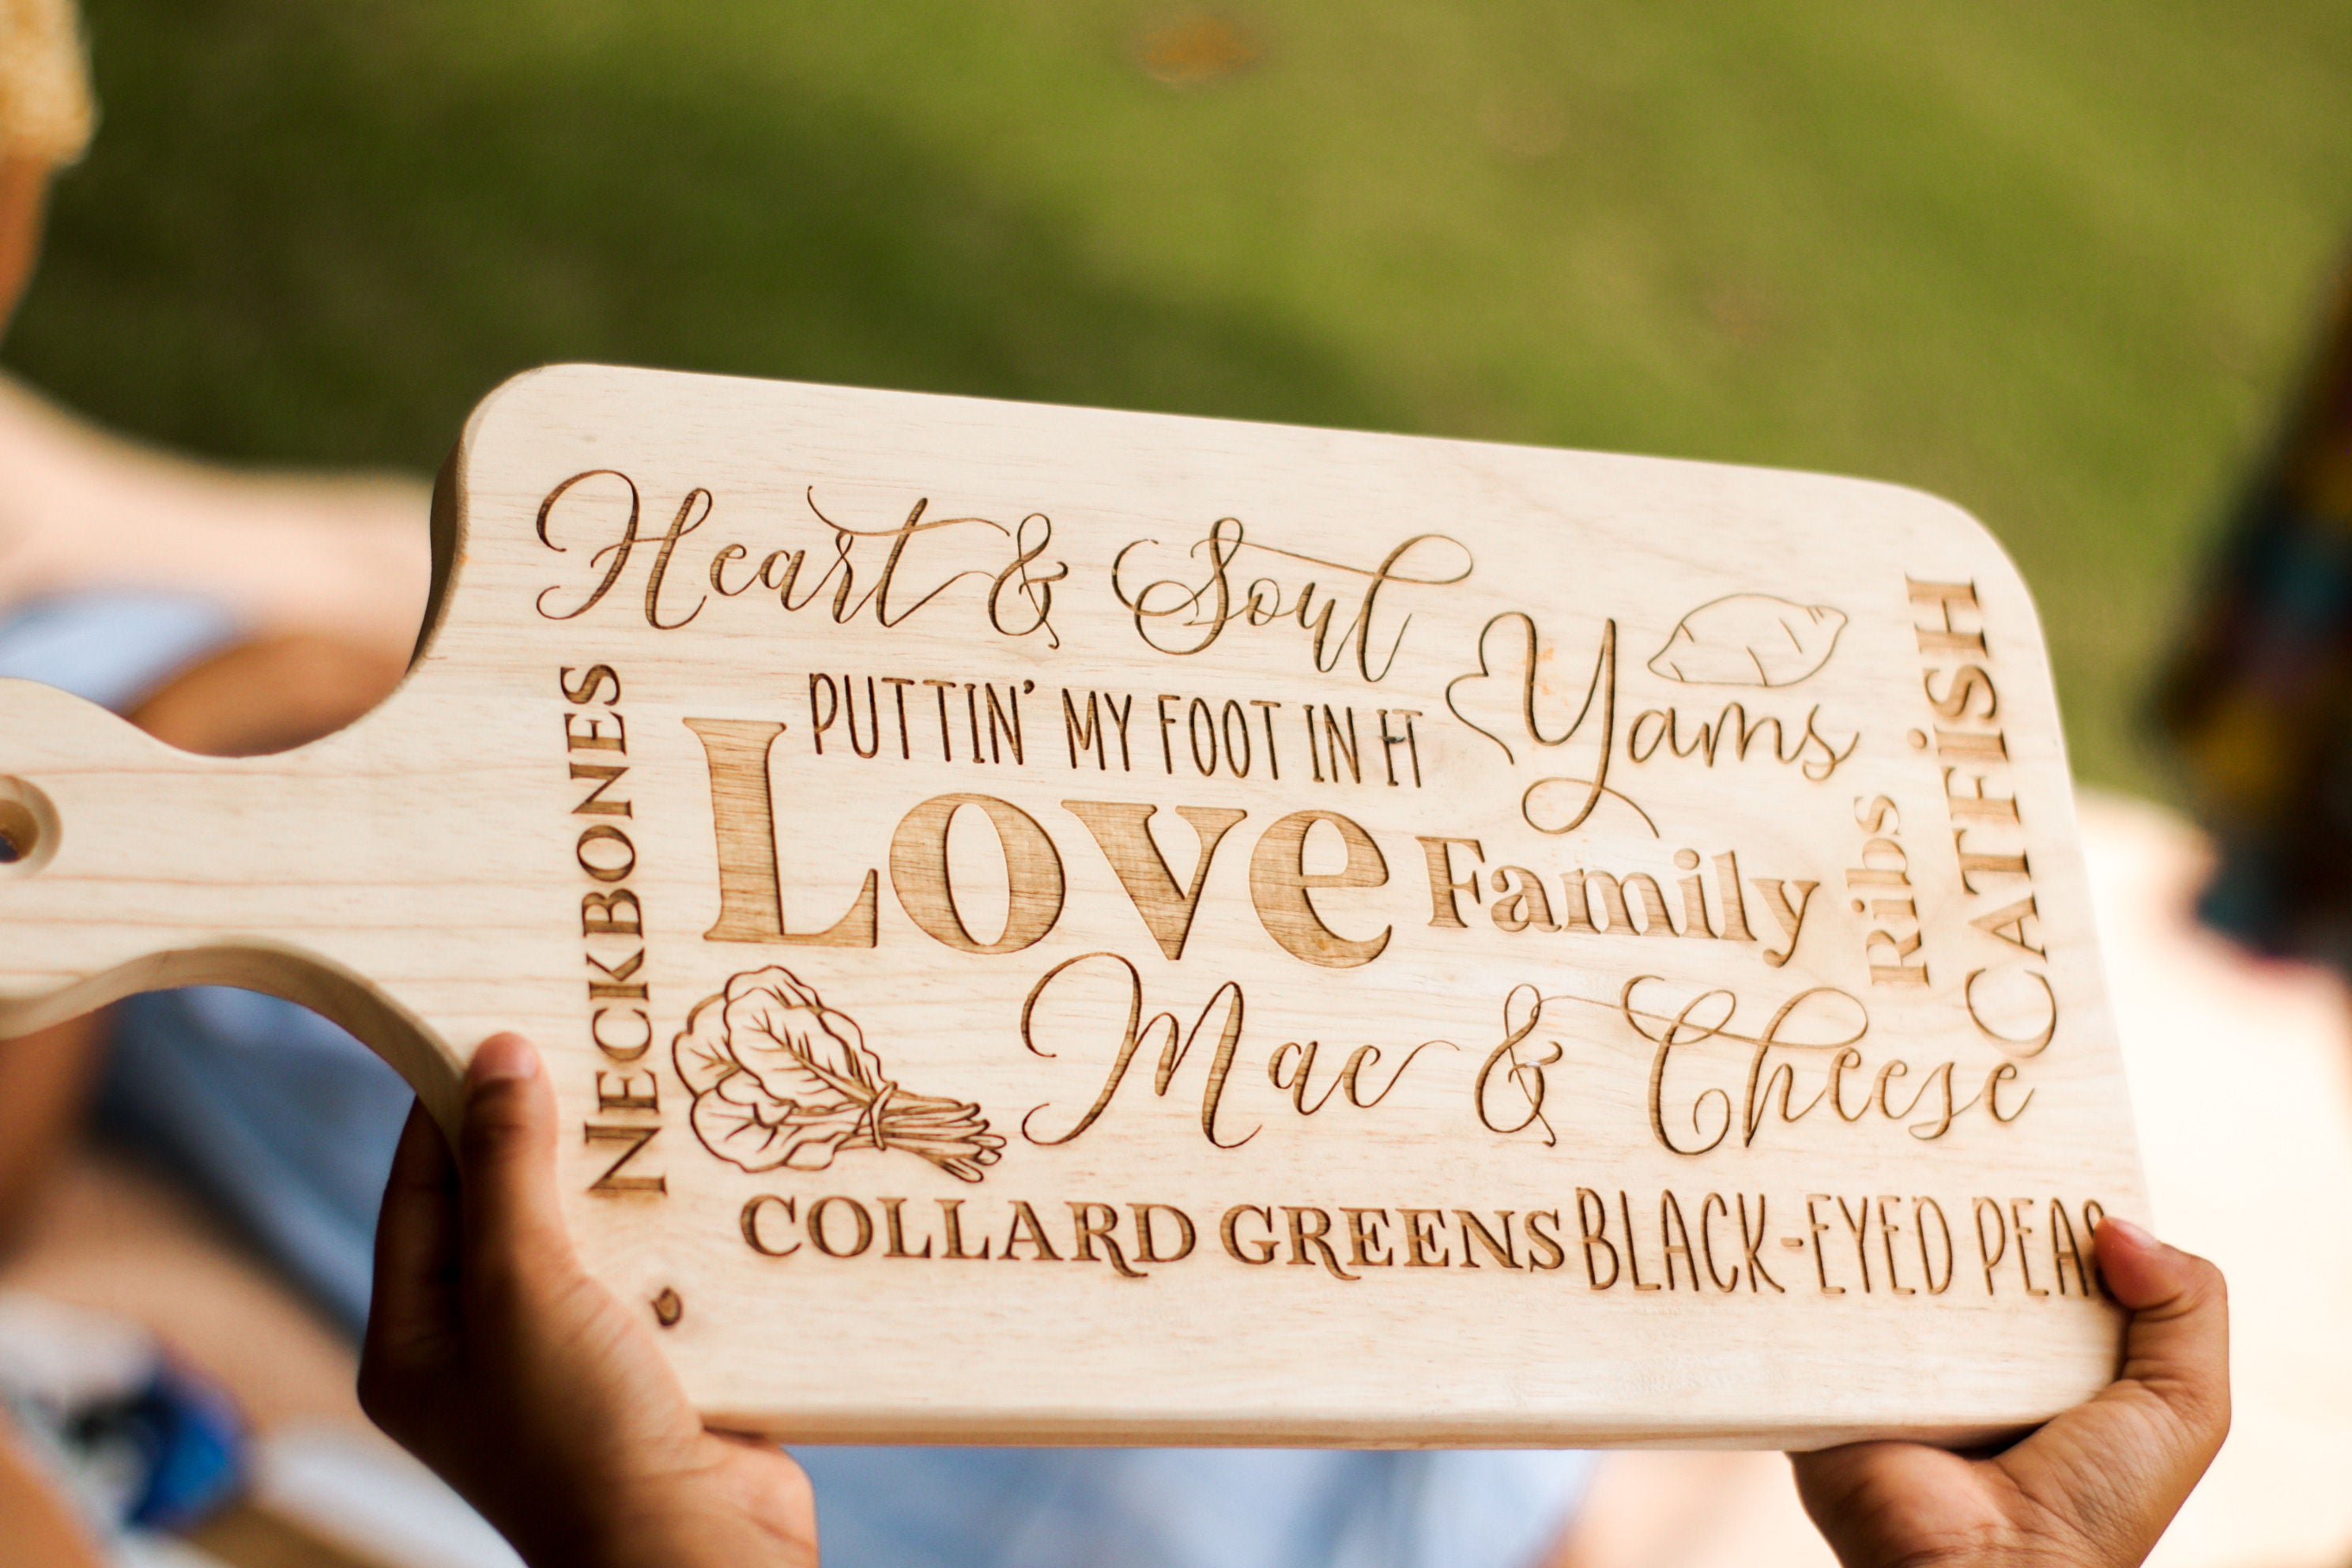 Heart & Soul
Yams
CATFiSH
NECKBONES
PUTTIN' MY FOOT IN IT
Love
Family
Ribs
Mac & Cheese
COLLARD GREENS
BLACK-EYED PEAS